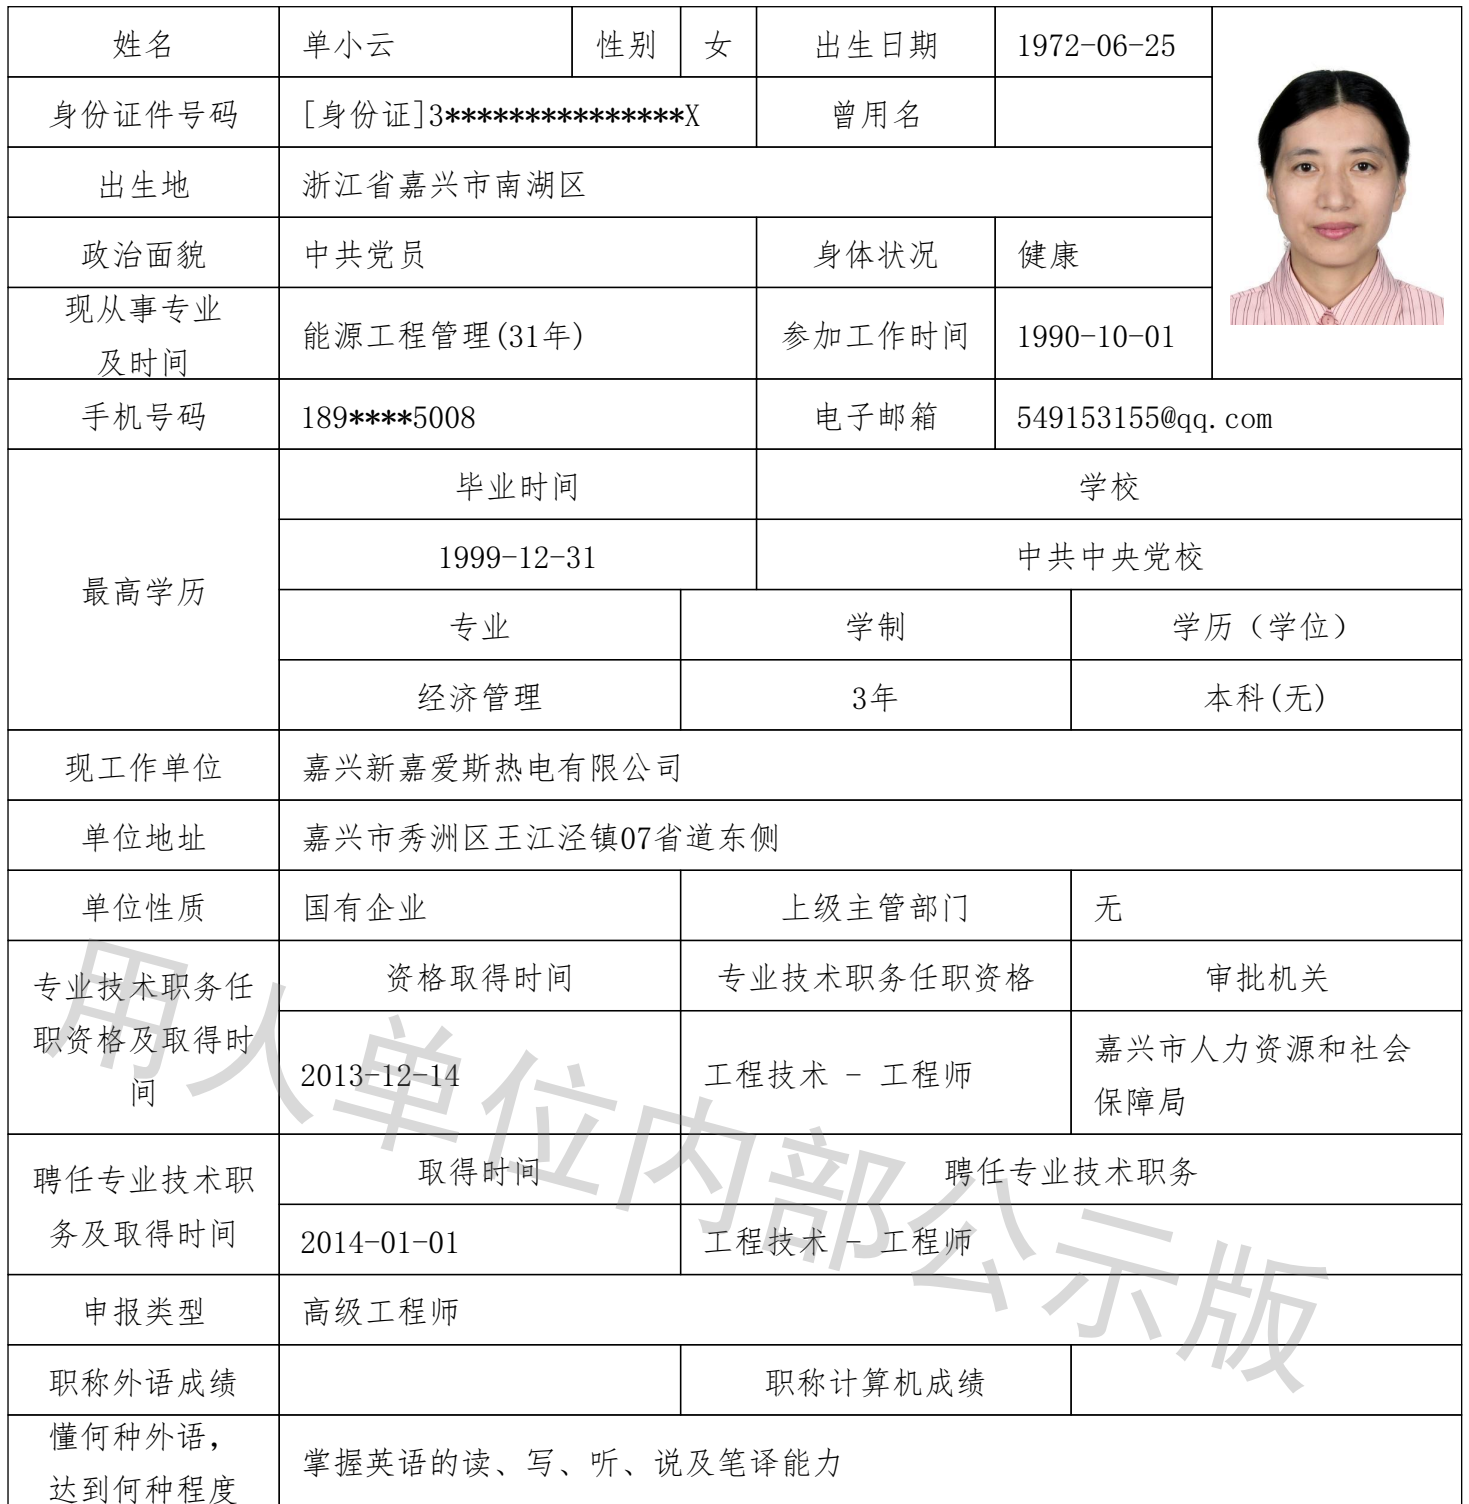 姓名 单小云 性别 女 出生日期 1972-06-25
身份证件号码 [身份证]3***************X 曾用名
出生地 浙江省嘉兴市南湖区
政治面貌 中共党员 身体状况 健康
现从事专业
及时间 能源工程管理(31年) 参加工作时间 1990-10-01
手机号码 189****5008 电子邮箱 549153155@qq.com
最高学历
毕业时间 学校
1999-12-31 中共中央党校
专业 学制 学历（学位）
经济管理 3年 本科(无)
现工作单位 嘉兴新嘉爱斯热电有限公司
单位地址 嘉兴市秀洲区王江泾镇07省道东侧
单位性质 国有企业 上级主管部门 无
专业技术职务任
职资格及取得时
间
资格取得时间 专业技术职务任职资格 审批机关
2013-12-14 工程技术 - 工程师 嘉兴市人力资源和社会
保障局
聘任专业技术职
务及取得时间
取得时间 聘任专业技术职务
2014-01-01 工程技术 - 工程师
申报类型 高级工程师
职称外语成绩 职称计算机成绩
懂何种外语，
达到何种程度 掌握英语的读、写、听、说及笔译能力
用人单位内部公示版